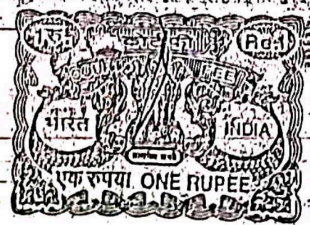 1 रु. कोर्ट फी Re.1
COURT FEE
भारत INDIA
सत्यमेव जयते
एक रूपया ONE RUPEE